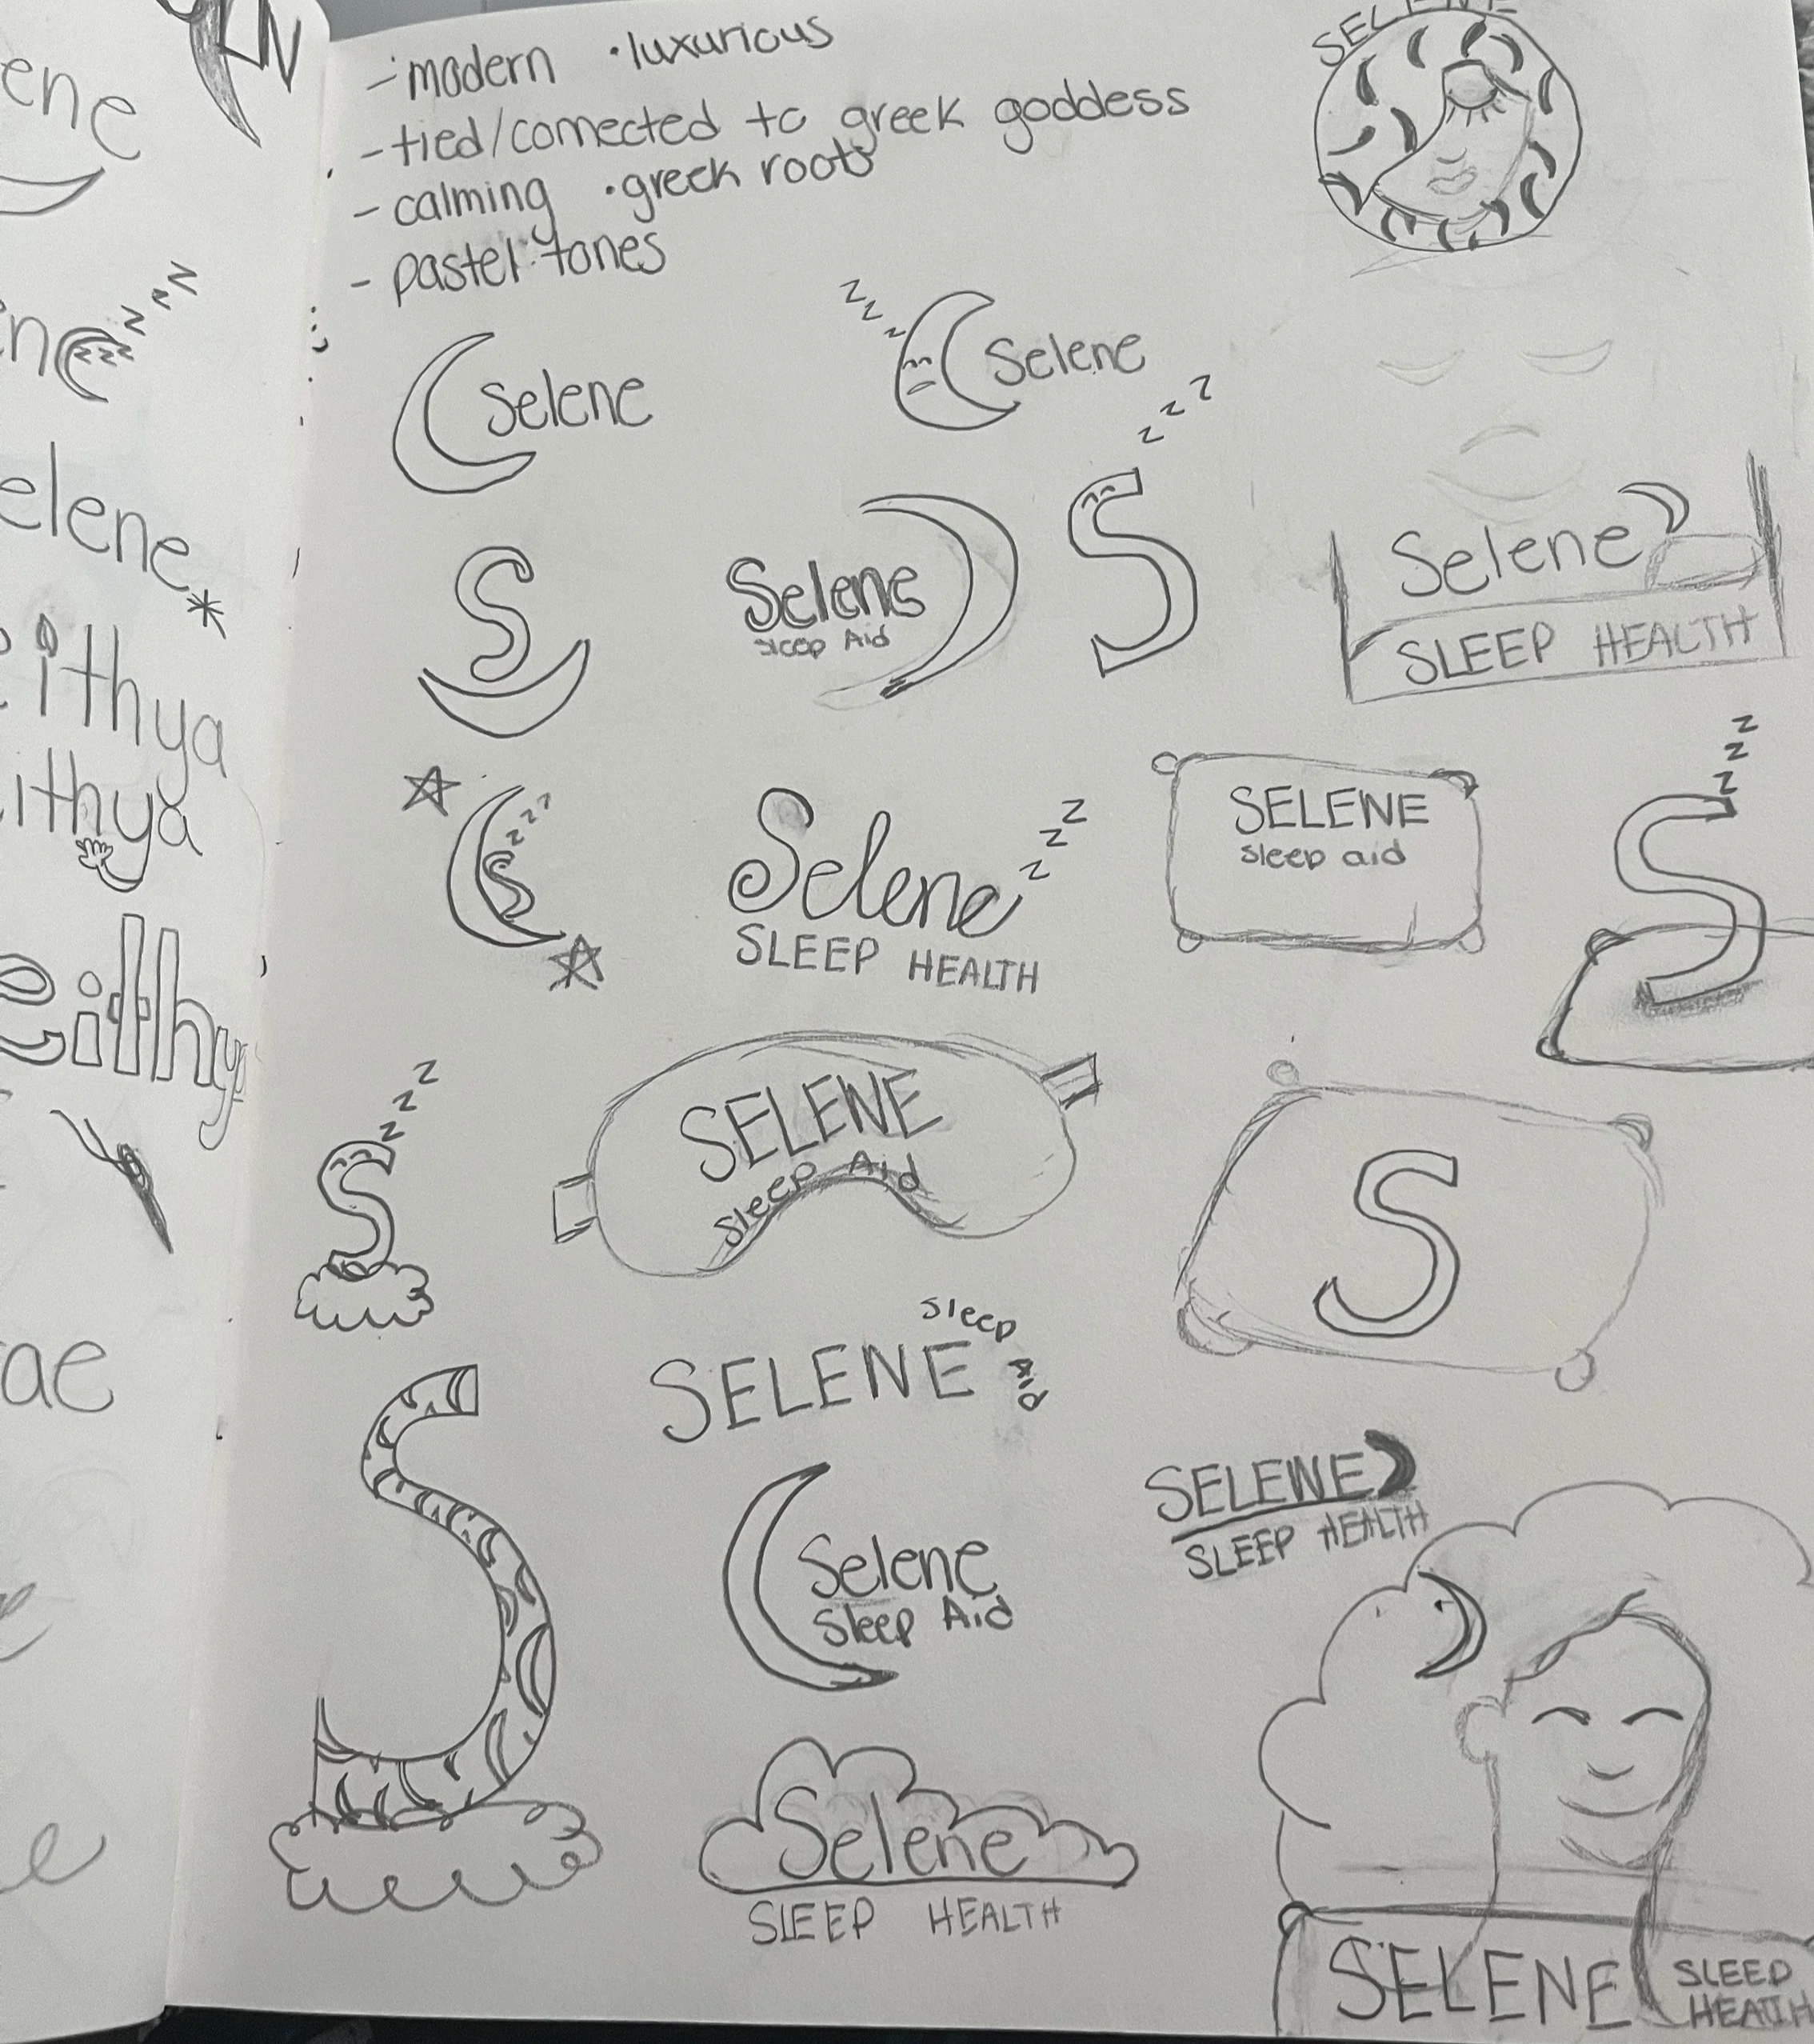 LN
ene
- modern · luxurious
- tied/connected to greek goddess
- calming · greek roots
- pastel tones
SELENE
z z z
ne
z z z
Selene
z z z
Selene
elene
*
S
Selene
sleep Aid
z z z
S
Selene
SLEEP HEALTH
ithya
ithya
z z z
S
Selene
z z z
SLEEP HEALTH
SELENE
sleep aid
z z z z
S
eithy
z z z z
S
SELENE
Sleep Aid
S
ae
SELENE
Sleep
AID
S
Selene
Sleep Aid
SELENE
SLEEP HEALTH
e
Selene
SLEEP HEALTH
SELENE
SLEEP
HEALTH